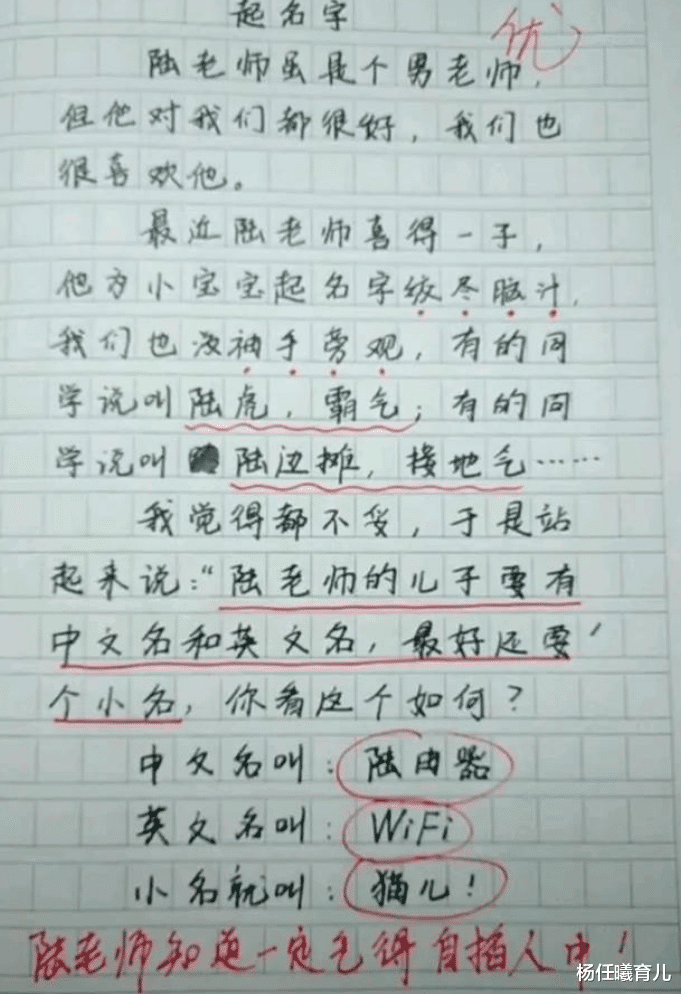 起名字
优
陆老师虽是个男老师，
但他对我们都很好，我们也
很喜欢他。
最近陆老师喜得一子，
他为小宝宝起名字绞尽脑汁，
我们也没袖手旁观，有的同
学说叫陆虎，霸气；有的同
学说叫陆边摊，接地气……
我觉得都不妥，于是站
起来说：“陆老师的儿子要有
中文名和英文名，最好还要
个小名，你看这个如何？
中文名叫：陆由器
英文名叫：WiFi
小名就叫：猫儿！
陆老师知道一定气得自掐人中！
杨任曦育儿